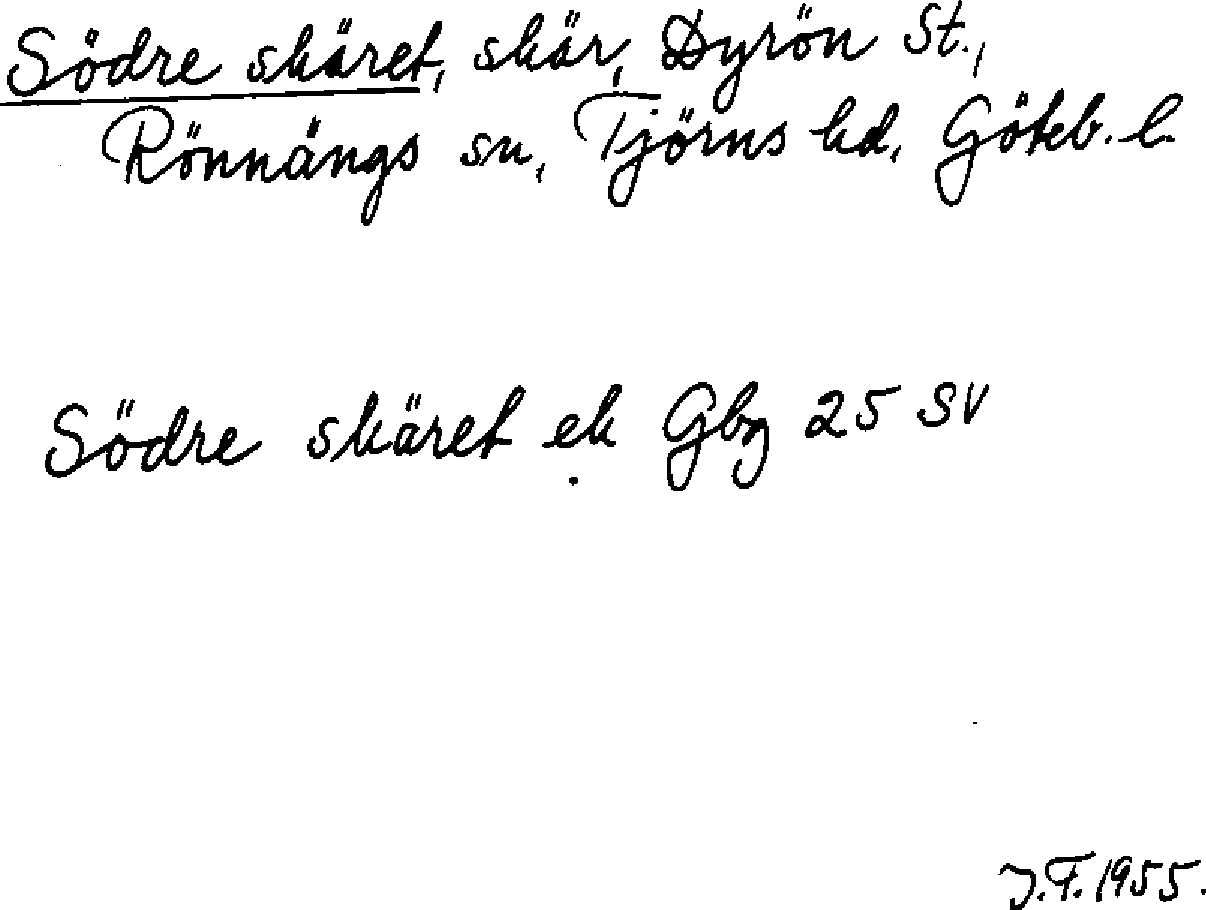 Södre skäret, skär, Dyrön St.,
Rönnängs sn, Tjörns hd, Göteb. l.
Södre skäret ek Gbg 25 SV
J.F. 1955.